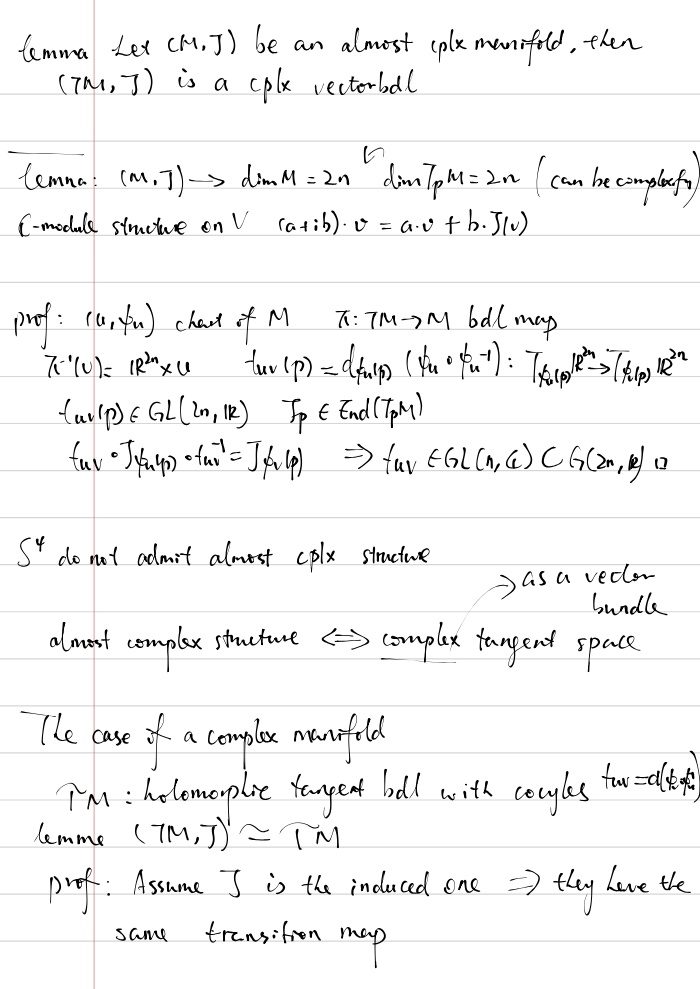 lemma Let (M,J) be an almost cplx manifold, then
(TM, J) is a cplx vectorbdl
lemma: (M,J) → dim M = 2n dim TpM = 2n (can be complexify)
C-module structure on V (a+ib)·v = a·v + b·J(v)
prof: (u, ψu) chart of M π: TM→M bdl map
π⁻¹(U) = ℝ²ⁿ × U tuv(p) = dψu(p) (ψv ∘ ψu⁻¹): Tψu(p)ℝ²ⁿ → Tψv(p)ℝ²ⁿ
tuv(p) ∈ GL(2n, ℝ) Jp ∈ End(TpM)
tuv ∘ Jψu(p) ∘ tuv⁻¹ = Jψv(p) ⇒ tuv ∈ GL(n, C) ⊂ G(2n, ℝ) □
S⁴ do not admit almost cplx structure
as a vector
bundle
almost complex structure ⇔ complex tangent space
The case of a complex manifold
TM : holomorphic tangent bdl with cocyles tuv = d(ψv∘ψu⁻¹)
lemme (TM, J) ≃ TM
prof: Assume J is the induced one ⇒ they have the
same transition map